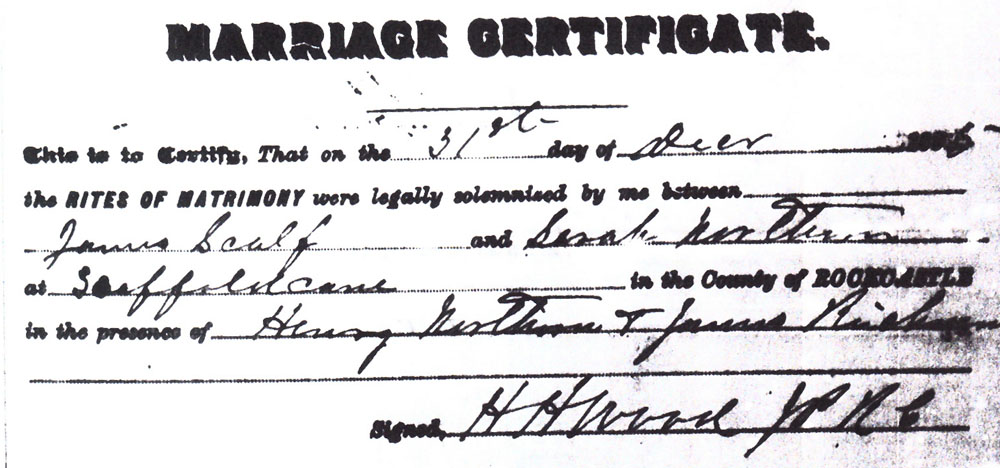 MARRIAGE CERTIFICATE.
This is to Certify, That on the 31st day of Decr
the RITES OF MATRIMONY were legally solemnized by me between
James Scalf and Sarah Northern
at Scaffoldcane in the County of ROCKCASTLE
in the presence of Henry Northern & James
Signed, H H Wood JPRC